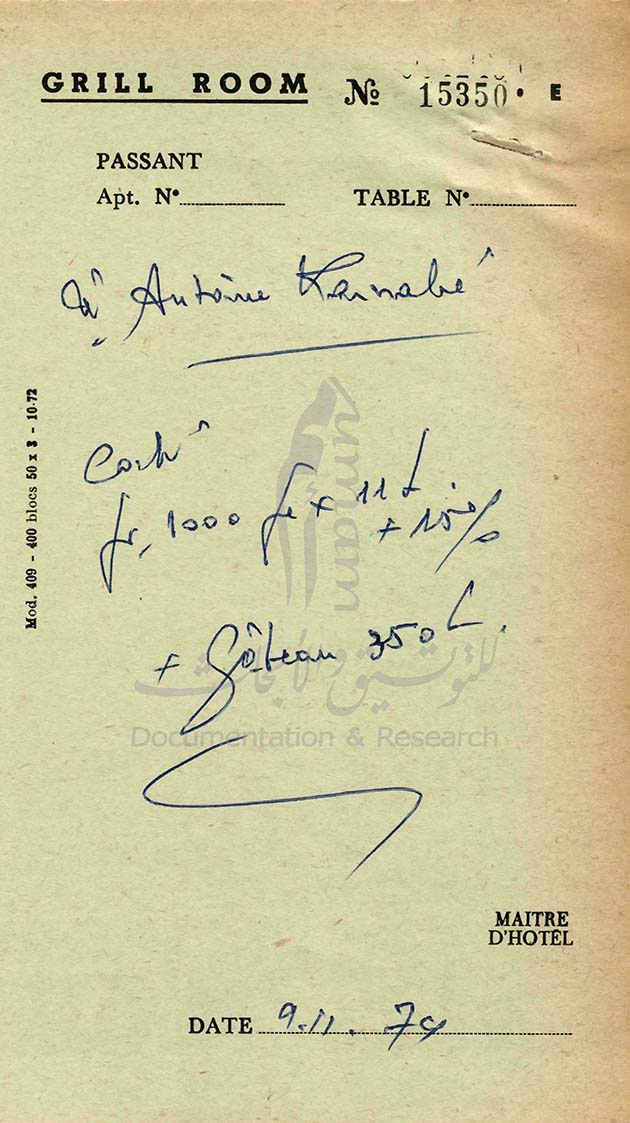 GRILL ROOM № 15350 • E
PASSANT
Apt. N°
TABLE N°
à Antoine
fr. 1000 x 11
+ 15 %
+ Gâteau 350 L.
UMAM
للتوثيق والأبحاث
Documentation & Research
Mod. 409 - 400 blocs 50 x 3 - 10-72
MAITRE
D'HOTEL
DATE 9.11.74